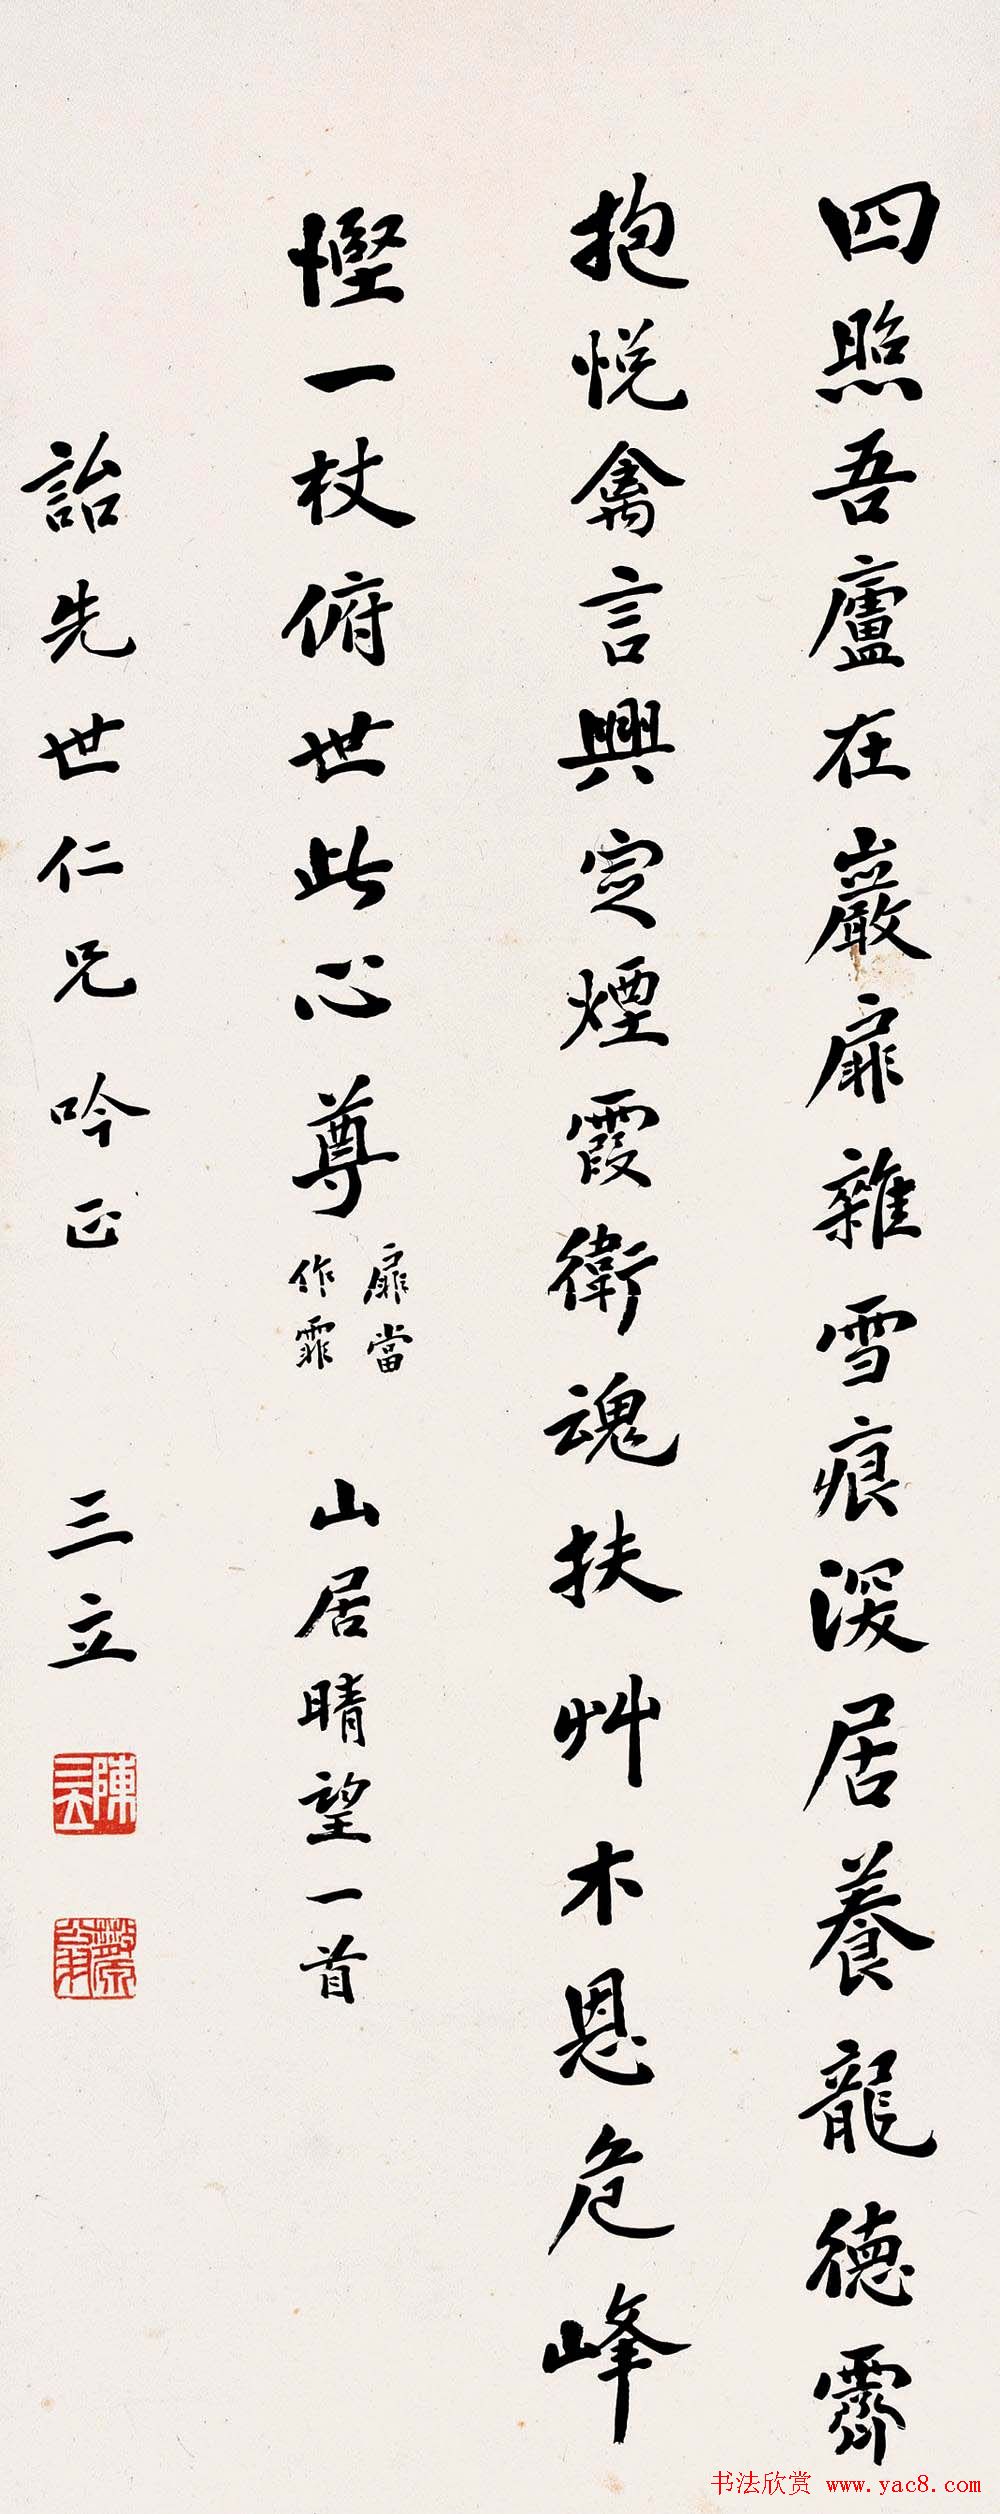 四照吾廬在巖扉雜雪痕深居養龍德霽
抱悅禽言興定煙霞衛魂扶艸木恩危峰
慳一杖俯世此心尊
扉當
作霏
山居晴望一首
詒先世仁兄吟正
三立
陳三立
書法欣赏 www.yac8.com